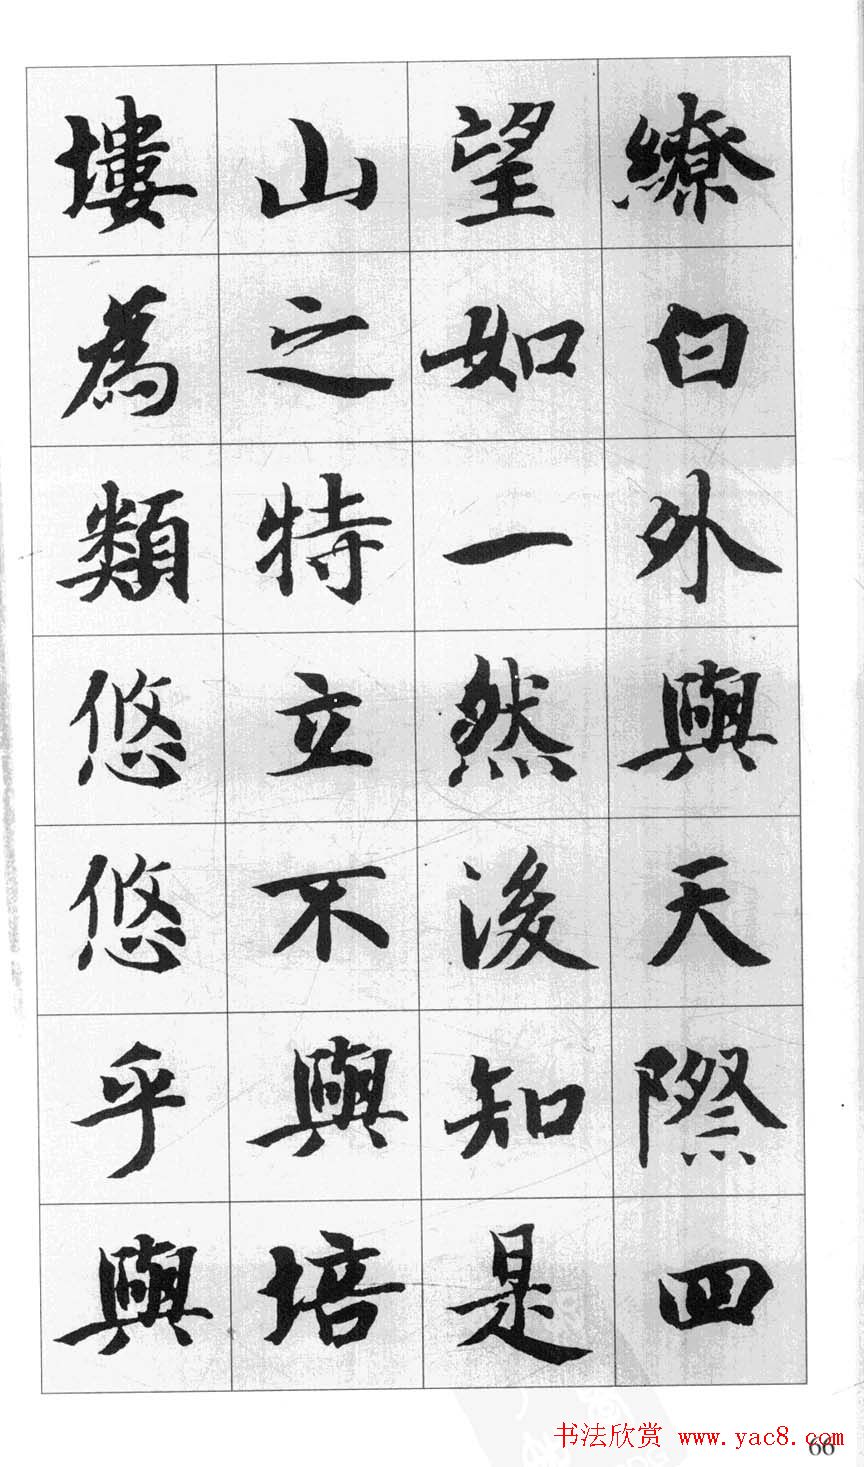 繚白外與天際四
望如一然後知是
山之特立不與培
塿為類悠悠乎與
书法欣赏 www.yac8.com
66